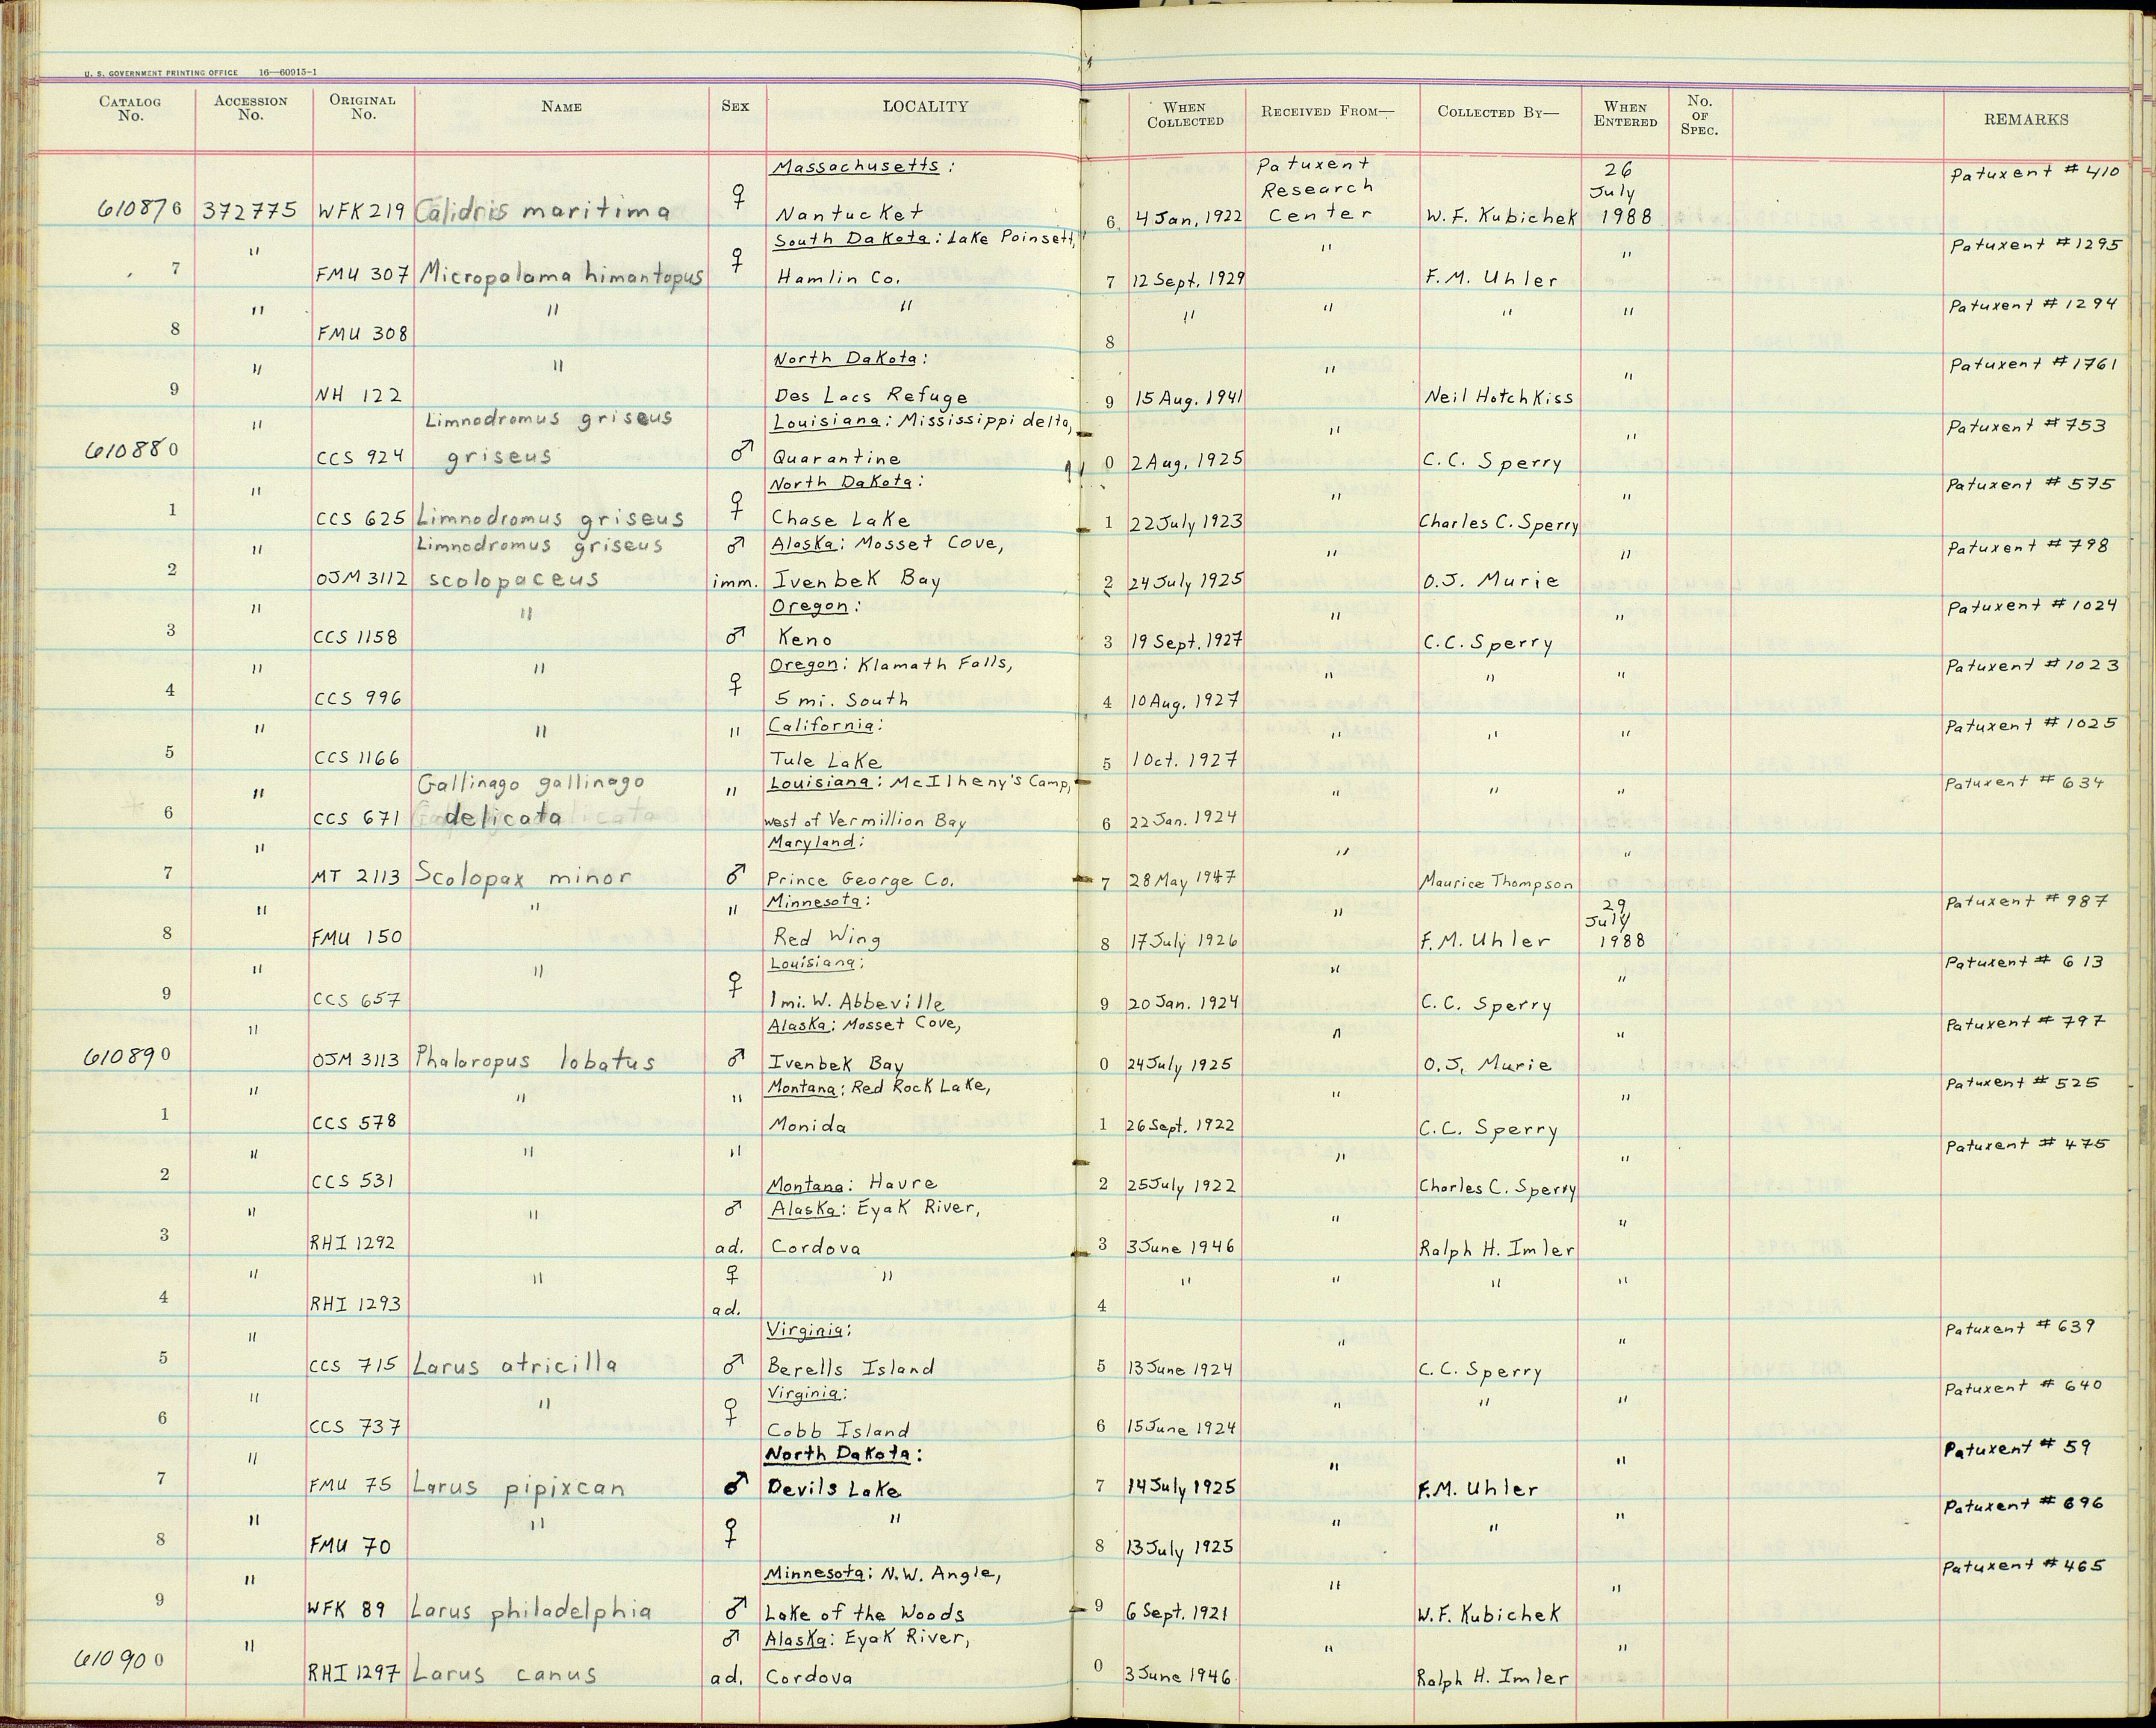 U. S. GOVERNMENT PRINTING OFFICE 16—60915-1
CATALOG No. ACCESSION No. ORIGINAL No. NAME SEX LOCALITY WHEN COLLECTED RECEIVED FROM— COLLECTED BY— WHEN ENTERED No. OF SPEC. REMARKS
Massachusetts: Patuxent Research 26 July Patuxent #410
610876 372775 WFK 219 Calidris maritima ♀ Nantucket 6 4 Jan, 1922 Center W. F. Kubichek 1988
" South Dakota: Lake Poinsett, " " Patuxent #1295
7 FMU 307 Micropalama himantopus ♀ Hamlin Co. 7 12 Sept. 1929 F. M. Uhler
" " " " " " " Patuxent #1294
8 FMU 308 8
" " North Dakota: " " Patuxent #1761
9 NH 122 Des Lacs Refuge 9 15 Aug. 1941 Neil Hotchkiss
" Limnodromus griseus Louisiana: Mississippi delta, " " Patuxent #753
610880 CCS 924 griseus ♂ Quarantine 0 2 Aug, 1925 C. C. Sperry
" North Dakota: " " Patuxent #575
1 CCS 625 Limnodromus griseus ♀ Chase Lake 1 22 July 1923 Charles C. Sperry
" Limnodromus griseus ♂ Alaska: Mosset Cove, " " Patuxent #798
2 OJM 3112 scolopaceus imm. Ivenbek Bay 2 24 July 1925 O. J. Murie
" " Oregon: " " Patuxent #1024
3 CCS 1158 ♂ Keno 3 19 Sept. 1927 C. C. Sperry
" " Oregon: Klamath Falls, " " " Patuxent #1023
4 CCS 996 ♀ 5 mi. South 4 10 Aug. 1927
" " " California: " " " Patuxent #1025
5 CCS 1166 Tule Lake 5 1 Oct. 1927
" Gallinago gallinago " Louisiana: McIlheny's Camp, " " " Patuxent #634
6 CCS 671 delicata west of Vermillion Bay 6 22 Jan. 1924
" Maryland: " "
7 MT 2113 Scolopax minor ♂ Prince George Co. 7 28 May 1947 Maurice Thompson
" " " Minnesota: " 29 July Patuxent #987
8 FMU 150 Red Wing 8 17 July 1926 F. M. Uhler 1988
" " Louisiana: " " Patuxent #613
9 CCS 657 ♀ 1 mi. W. Abbeville 9 20 Jan. 1924 C. C. Sperry
" Alaska: Mosset Cove, " " Patuxent #797
610890 OJM 3113 Phalaropus lobatus ♂ Ivenbek Bay 0 24 July 1925 O. J. Murie
" " " Montana: Red Rock Lake, " " Patuxent #525
1 CCS 578 Monida 1 26 Sept. 1922 C. C. Sperry
" " " " " Patuxent #475
2 CCS 531 Montana: Havre 2 25 July 1922 Charles C. Sperry
" " ♂ Alaska: Eyak River, " "
3 RHI 1292 ad. Cordova 3 3 June 1946 Ralph H. Imler
" " ♀ " " " " "
4 RHI 1293 ad. 4
" Virginia: " " Patuxent #639
5 CCS 715 Larus atricilla ♂ Berells Island 5 13 June 1924 C. C. Sperry
" " Virginia: " " " Patuxent #640
6 CCS 737 ♀ Cobb Island 6 15 June 1924
" North Dakota: " " Patuxent #59
7 FMU 75 Larus pipixcan ♂ Devils Lake 7 14 July 1925 F. M. Uhler
" " " " " " Patuxent #696
8 FMU 70 ♀ 8 13 July 1925
" Minnesota: N.W. Angle, " " Patuxent #465
9 WFK 89 Larus philadelphia ♂ Lake of the Woods 9 6 Sept. 1921 W. F. Kubichek
" ♂ Alaska: Eyak River, " "
610900 RHI 1297 Larus canus ad. Cordova 0 3 June 1946 Ralph H. Imler